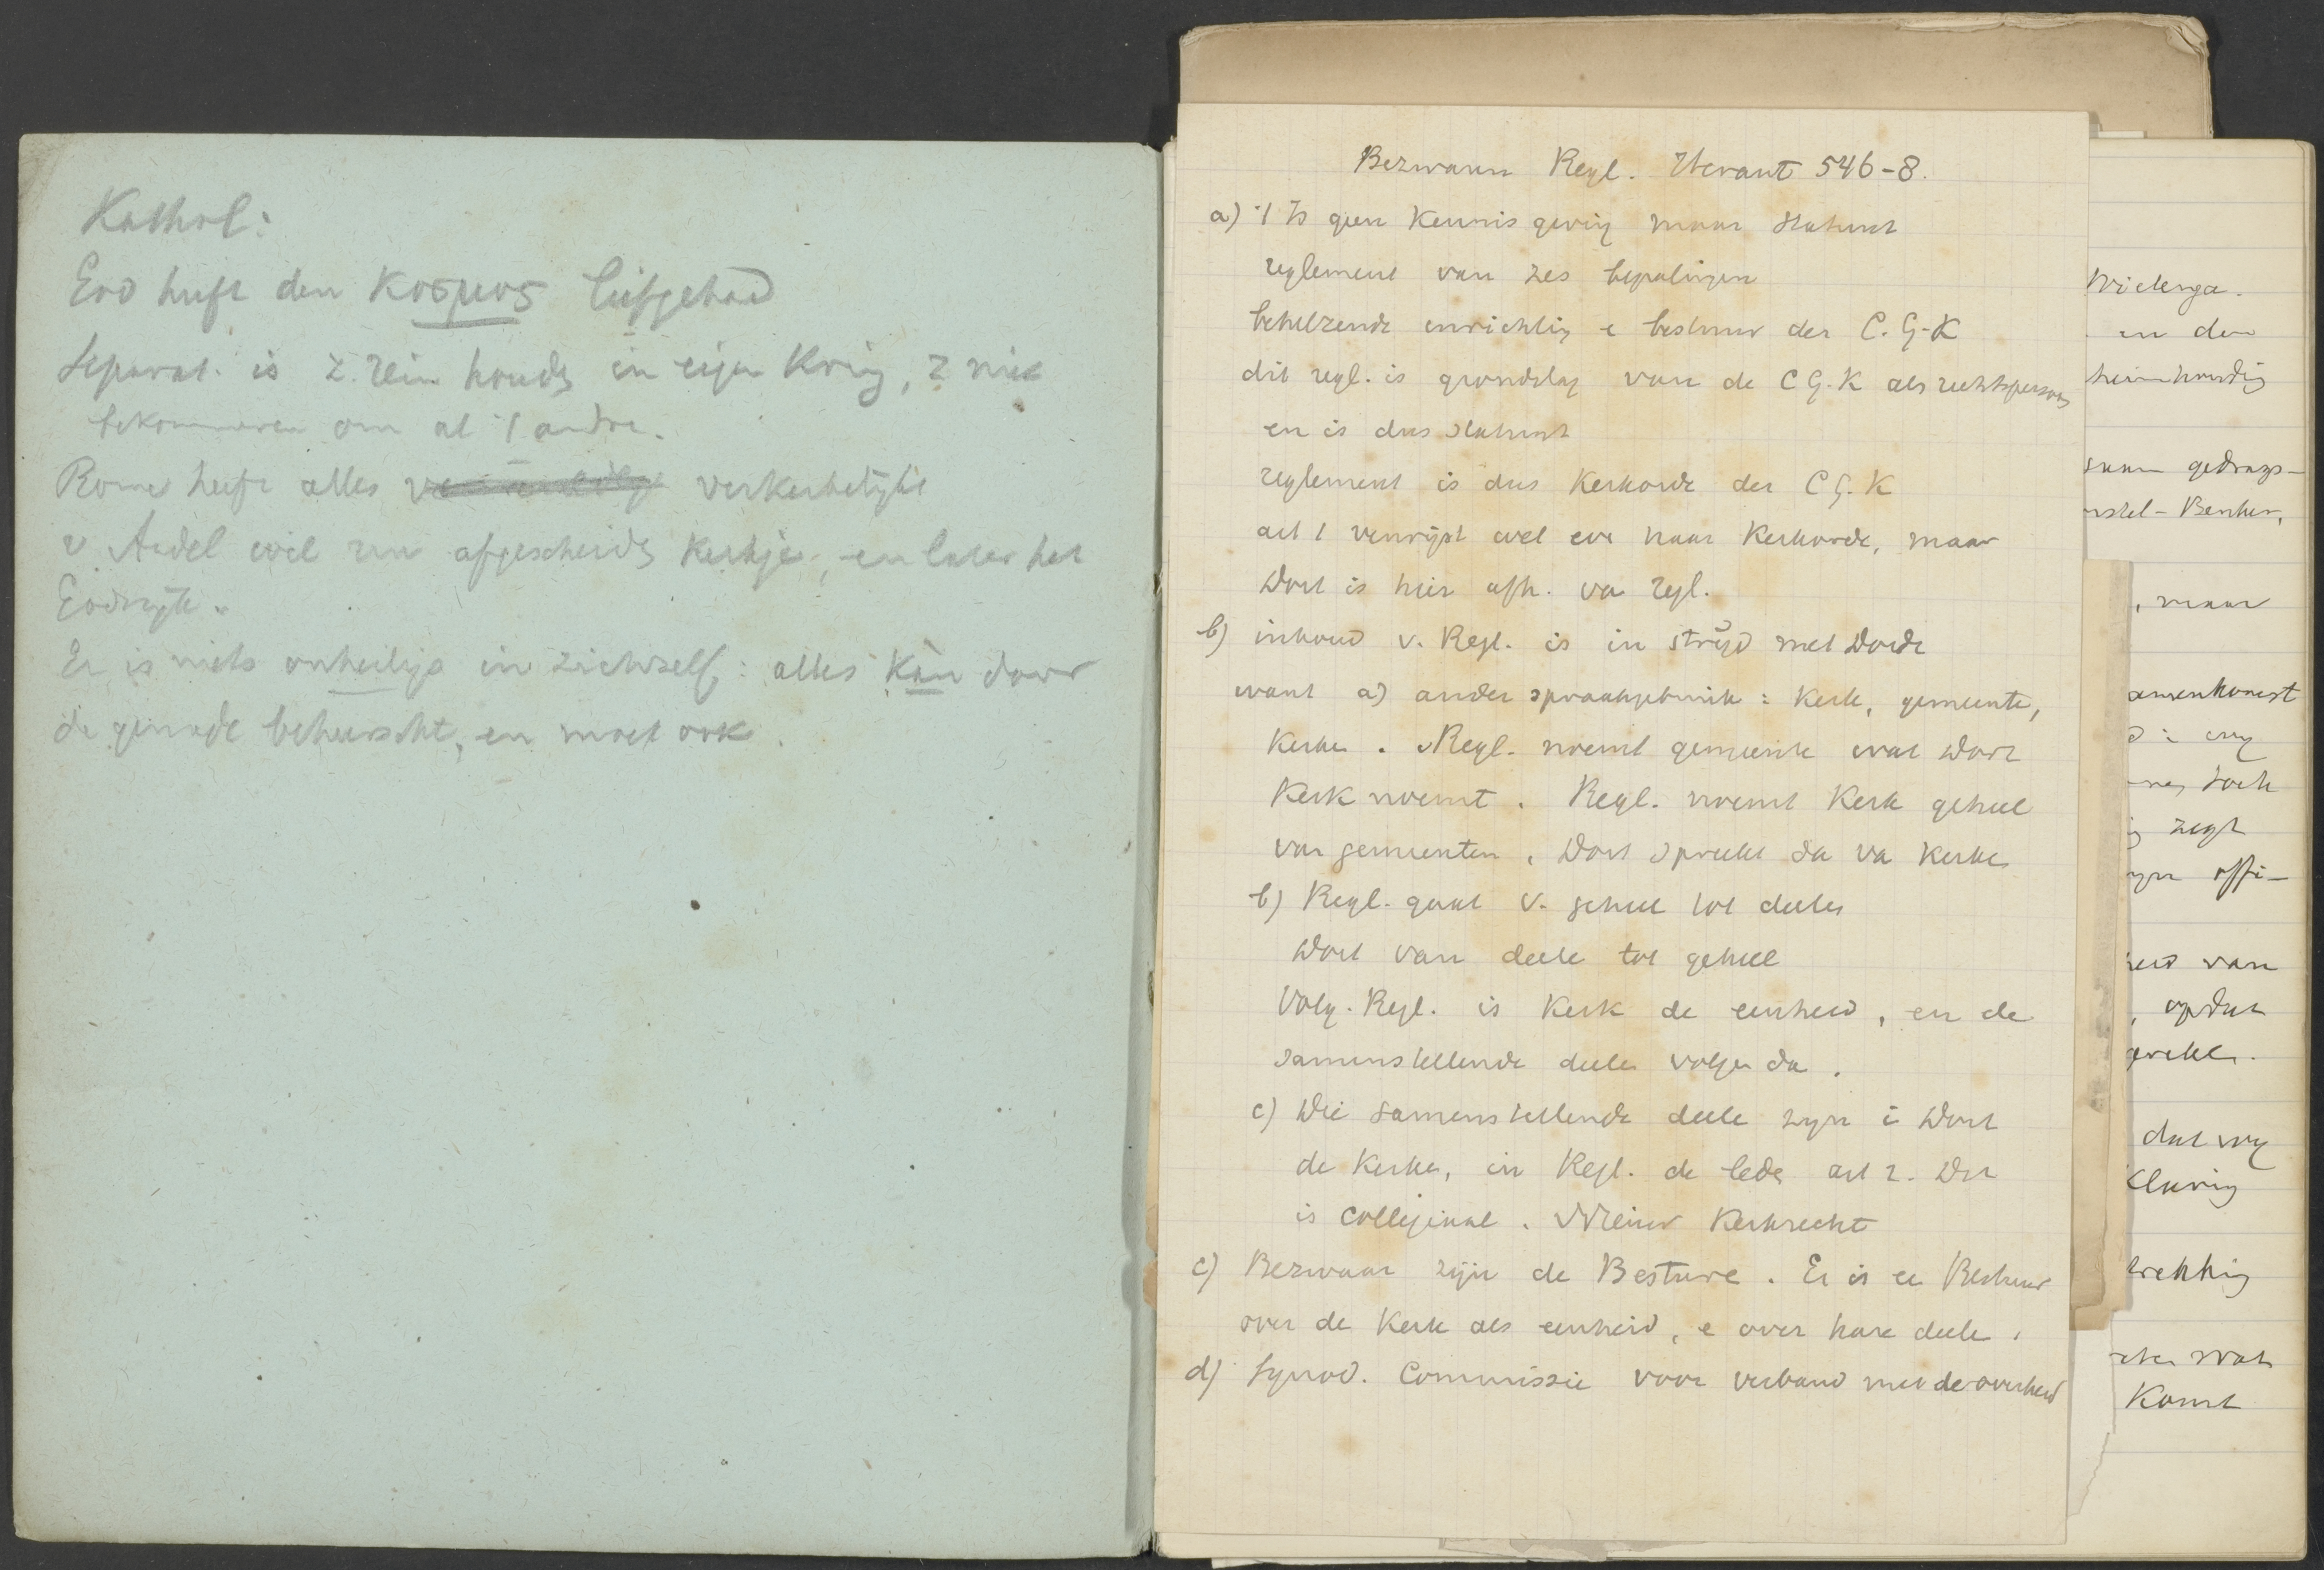 Kathol:
God heeft den κοσμος liefgehad
Separat. is z. rein houdn in eigen Kring, z niet
bekommeren om al 't andre.
Rome heeft alles verkerkelijkt
v. Andel wil een afgescheidn Kerkje, en later het
Godsrijk.
Er is niets onheiligs in zichzelf: alles kan door
de genade beheerscht, en moet ook.
Bezwaren Regl. Heraut 546-8.
a) 't Is geen Kennisgeving maar Statuut
reglement van zes bepalingen
behelzende inrichting e bestuur der C. G. K
dit regl. is grondslag van de C G. K als rechtspersoon
en is dus Statuut
reglement is dus Kerkorde der C G. K
art 1 verwijst wel eve naar Kerkorde, maar
Dort is hier afh. va regl.
b) inhoud v. Regl. is in strijd met Dordt
want a) ander spraakgebruik: Kerk, gemeente,
Kerke. Regl. noemt gemeente wat Dort
Kerk noemt. Regl. noemt Kerk geheel
van gemeenten, Dort spreekt da va Kerke
b) Regl. gaat v. geheel tot deele
Dort van deele tot geheel
Volg. Regl. is Kerk de eenheid, en de
samenstellende deele volge da.
c) Die samenstellende deele zijn i Dort
de Kerke, in Regl. de lede art 2. Dit
is collegiaal. Kerkrecht
c) Bezwaar zijn de Besture. Er is ee Bestuur
over de Kerk als eenheid, e over hare deele.
d) Synod. Commissie voor verband met de overheid
Wielenga.
en den
handig
gedrags-
, maar
amenkomst
toch
zegt
offi-
van
, opdat
dat wij
trekking
wat
Komt